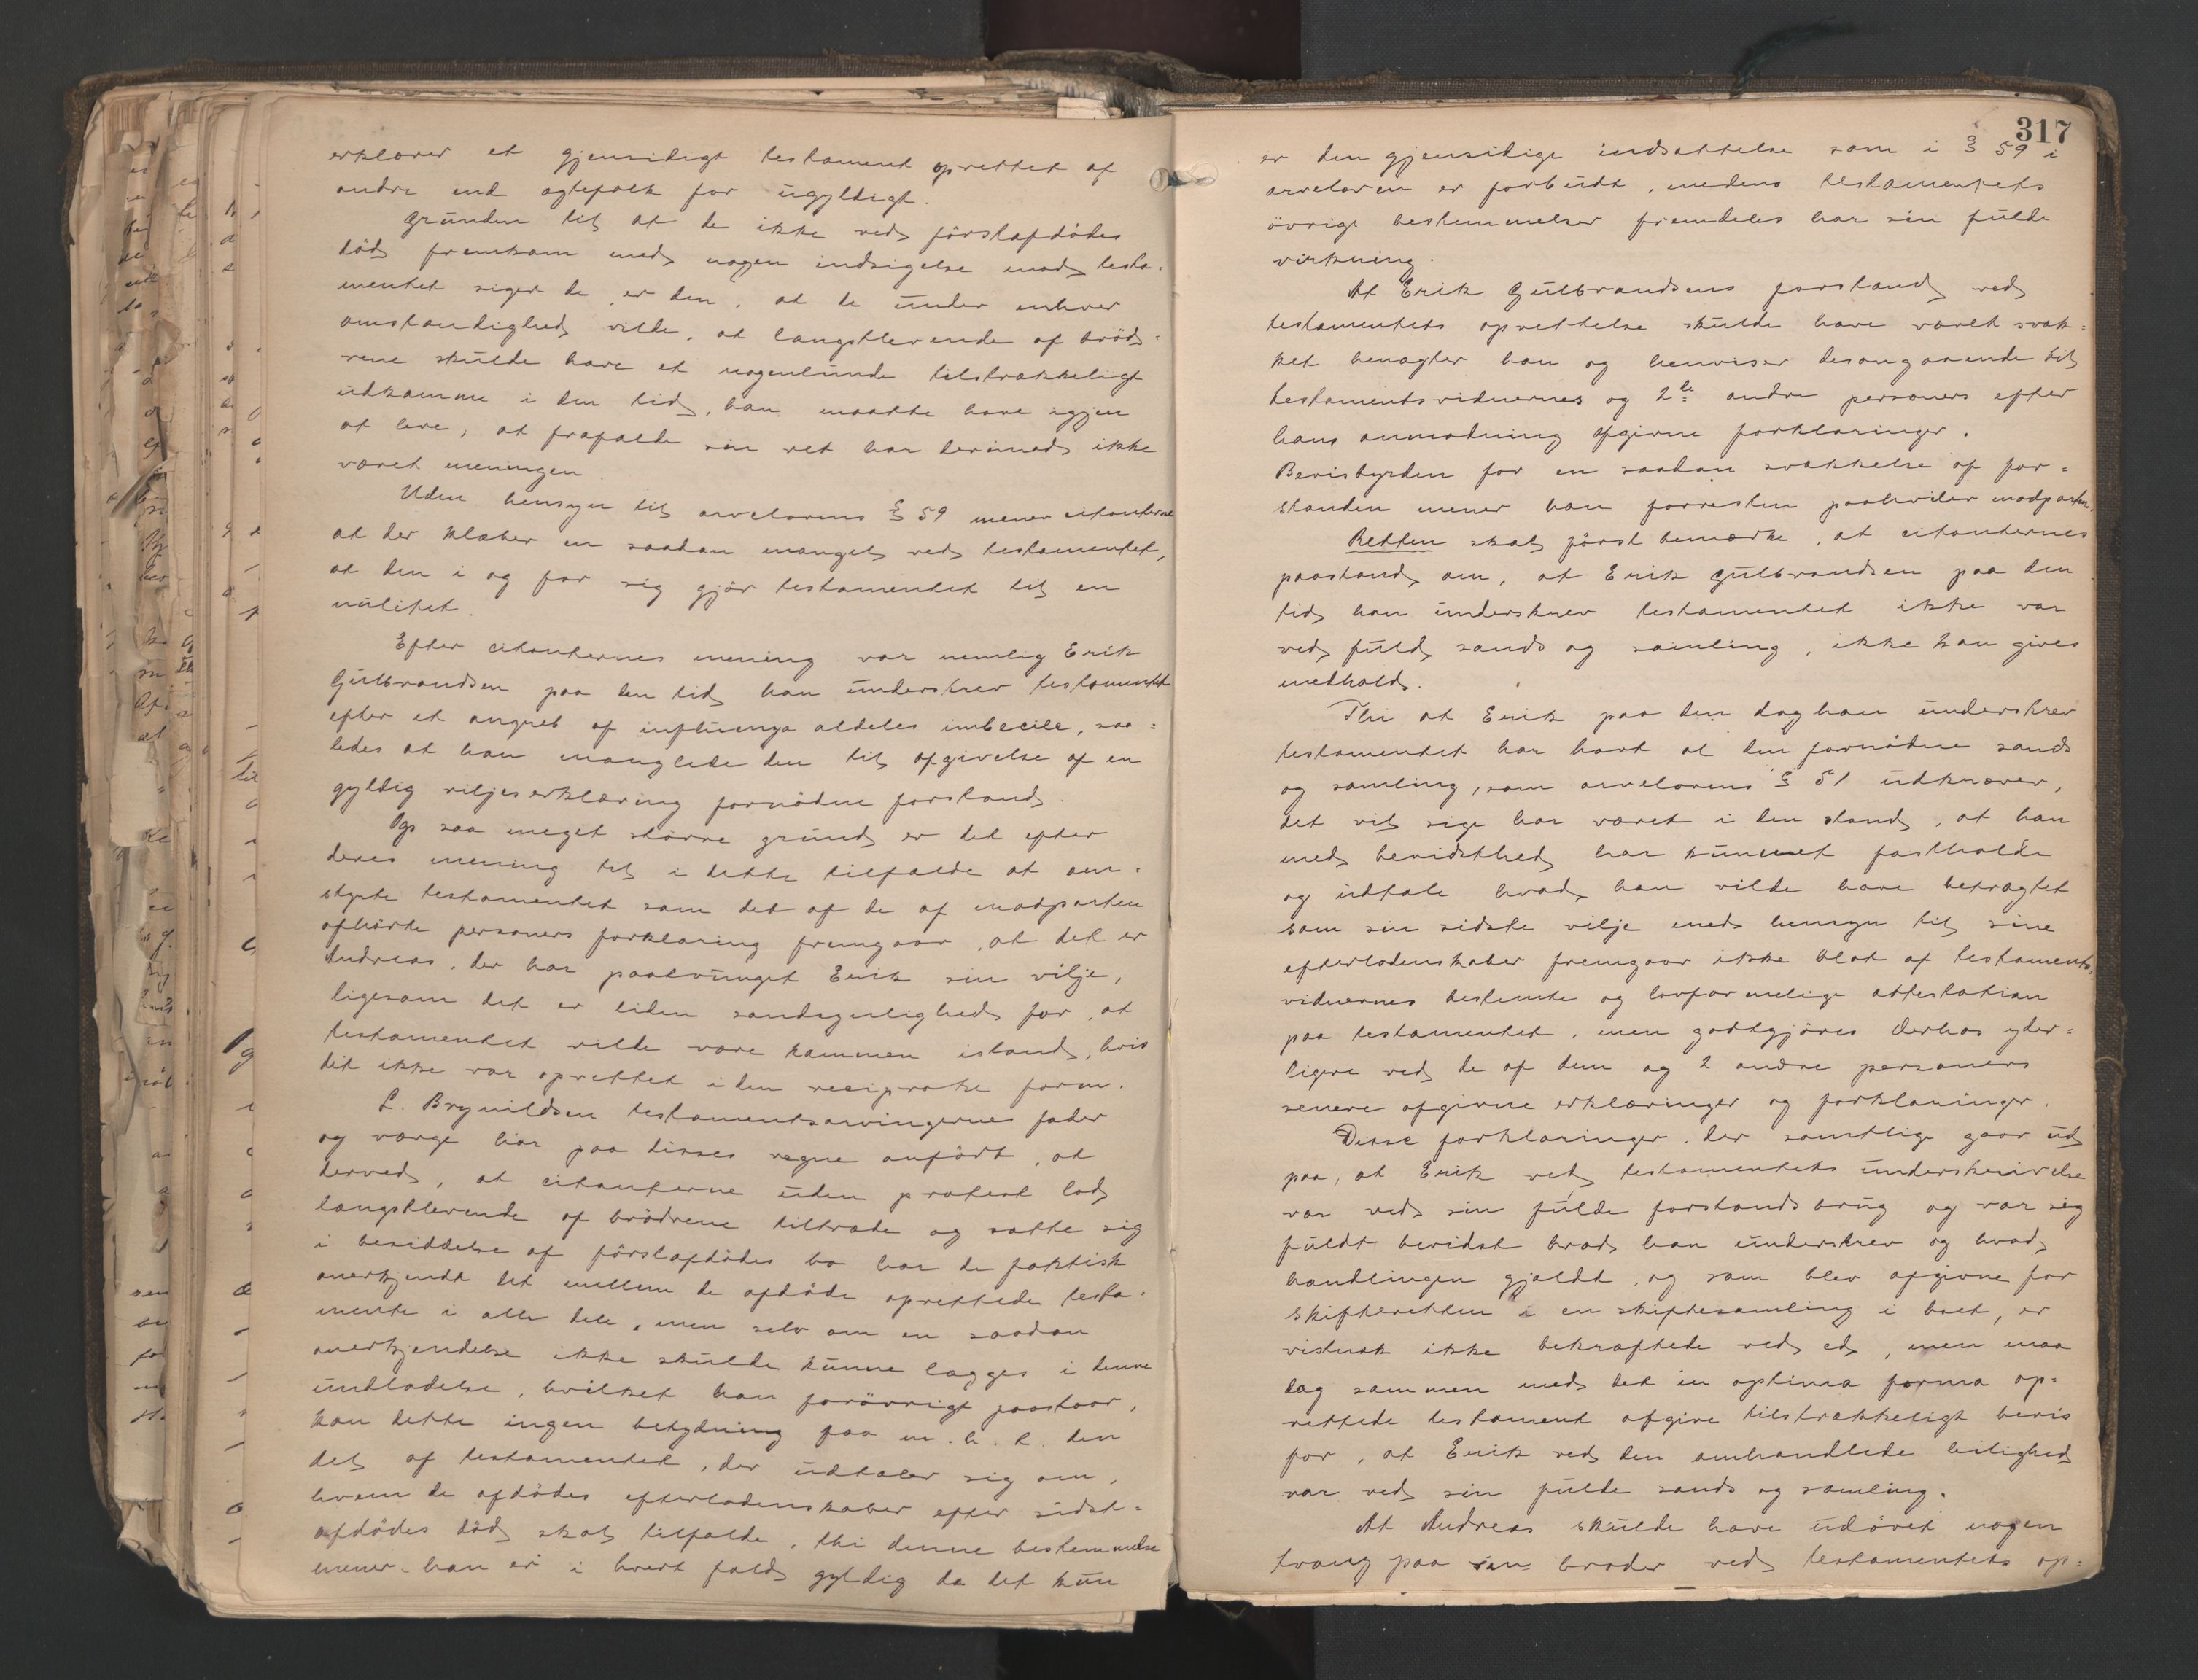 erklærer et gjensidigt testament oprettet af
andre end ægtefolk for ugyldigt.
Grunden til at de ikke ved förstafdödes
död fremkom med nogen indsigelse mod testa-
mentet siger de, er den, at de under enhver
omstændighed vilde, at længstlevende af bröd-
rene skulde have et nogenlunde tilstrækkeligt
udkomme i den tid, han maatte have igjen
at leve; at frafalde sin ret har derimod ikke
været meningen.
Uden hensyn til arvelovens § 59 mener citanterne
at der klæber en saadan mangel ved testamentet,
at den i og for sig gjör testamentet til en
nulitet.
Efter citanternes mening var nemlig Erik
Gulbrandsen paa den tid han underskrev testamentet
efter et angreb af influenza aldeles imbecile, saa-
ledes at han manglede den til afgivelse af en
gyldig viljeserklæring fornödne forstand.
Og saa meget större grund er det efter
deres mening til i dette tilfælde at om-
styrte testamentet som det af de af modparten
afhörte personers forklaring fremgaar, at det er
Andreas, der har paatvunget Erik sin vilje,
ligesom det er liden sandsynlighed for, at
testamentet vilde være kommen istand, hvis
det ikke var oprettet i den reciproke form.
L. Brynildsen testamentsarvingernes fader
og værge har paa disses vegne anfört, at
derved, at citanterne uden protest lod
længstlevende af brödrene tiltræde og sætte sig
i besiddelse af förstafdödes bo har de faktisk
anerkjendt det mellem de afdöde oprettede testa-
mente i alle dele, men selv om en saadan
anerkjendelse ikke skulde kunne lægges i denne
undladelse, hvilket han forövrigt paastaar,
kan dette ingen betydning faa m. h. t. den
del af testamentet, der udtaler sig om,
hvem de afdödes efterladenskaber efter sidst-
afdödes död skal tilfalde, thi denne bestemmelse
mener han er i hvert fald gyldig da det kun
317
er den gjensidige indsættelse som i § 59 i
arveloven er forbudt, medens testamentets
övrige bestemmelser fremdeles har sin fulde
virkning.
At Erik Gulbrandsens forstand ved
testamentets oprettelse skulde have været svæk-
ket benægter han og henviser desangaaende til
testamentsvidnernes og 2de andre personers efter
hans anmodning afgivne forklaringer.
Bevisbyrden for en saadan svækkelse af for-
standen mener han forresten paahviler modparten.
Retten skal först bemærke, at citanternes
paastand om, at Erik Gulbrandsen paa den
tid han underskrev testamentet ikke var
ved fuld sands og samling, ikke kan gives
medhold.
Thi at Erik paa den dag han underskrev
testamentet har havt al den fornödne sands
og samling, som arvelovens § 51 udkræver,
det vil sige har været i den stand, at han
med bevidsthed har kunnet fastholde
og udtale hvad han vilde have betragtet
som sin sidste vilje med hensyn til sine
efterladenskaber fremgaar ikke blot af testaments-
vidnernes bestemte og lovformelige attestation
paa testamentet, men godtgjöres derhos yder-
ligere ved de af dem og 2 andre personers
senere afgivne erklæringer og forklaringer.
Disse forklaringer, der samtlige gaar ud
paa, at Erik ved testamentets underskrivelse
var ved sin fulde forstands brug og var sig
fuldt bevidst hvad han underskrev og hvad
handlingen gjaldt, og som blev afgivne for
skifteretten i en skiftesamling i boet, er
vistnok ikke bekræftede ved ed, men maa
dog sammen med det in optima forma op-
rettede testament afgive tilstrækkeligt bevis
for, at Erik ved den omhandlede leilighed
var ved sin fulde sands og samling.
At Andreas skulde have udövet nogen
tvang paa sin broder ved testamentets op-